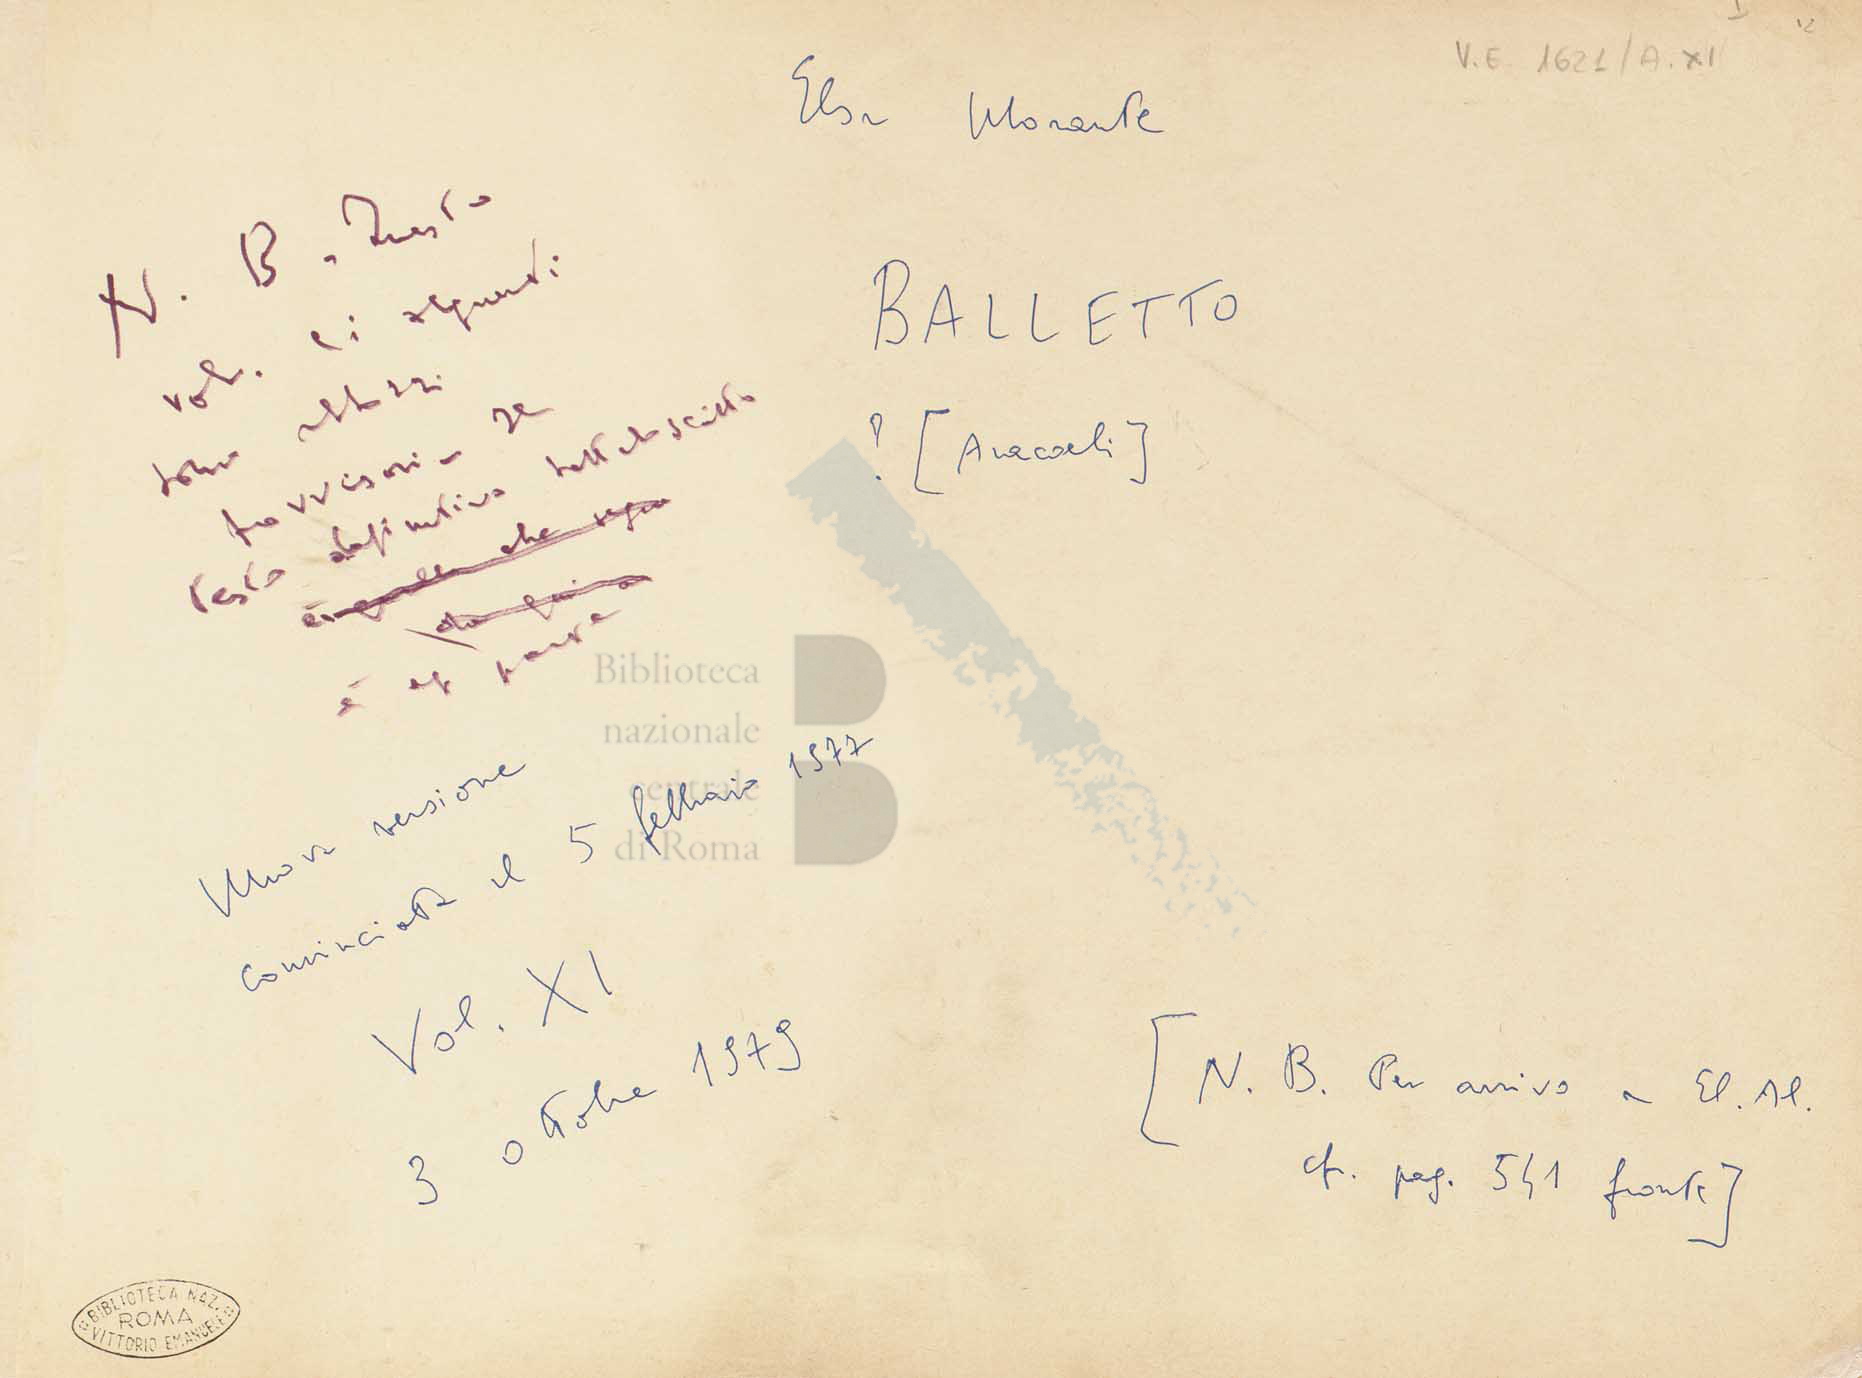 V.E. 1621/A.XI
Elsa Morante
BALLETTO
? [Aracoeli]
N. B. Questo
vol. e i seguenti
sono abbozzi
provvisori
testo definitivo tutto da scritto
e quello che segue
da qui
è a parte
Biblioteca
nazionale
centrale
di Roma
Nuova versione
cominciata il 5 febbraio 1977
Vol. XI
3 ottobre 1979
[N. B. Per arrivo a El. Al.
cfr. pag. 541 fronte]
BIBLIOTECA NAZ.
ROMA
VITTORIO EMANUELE